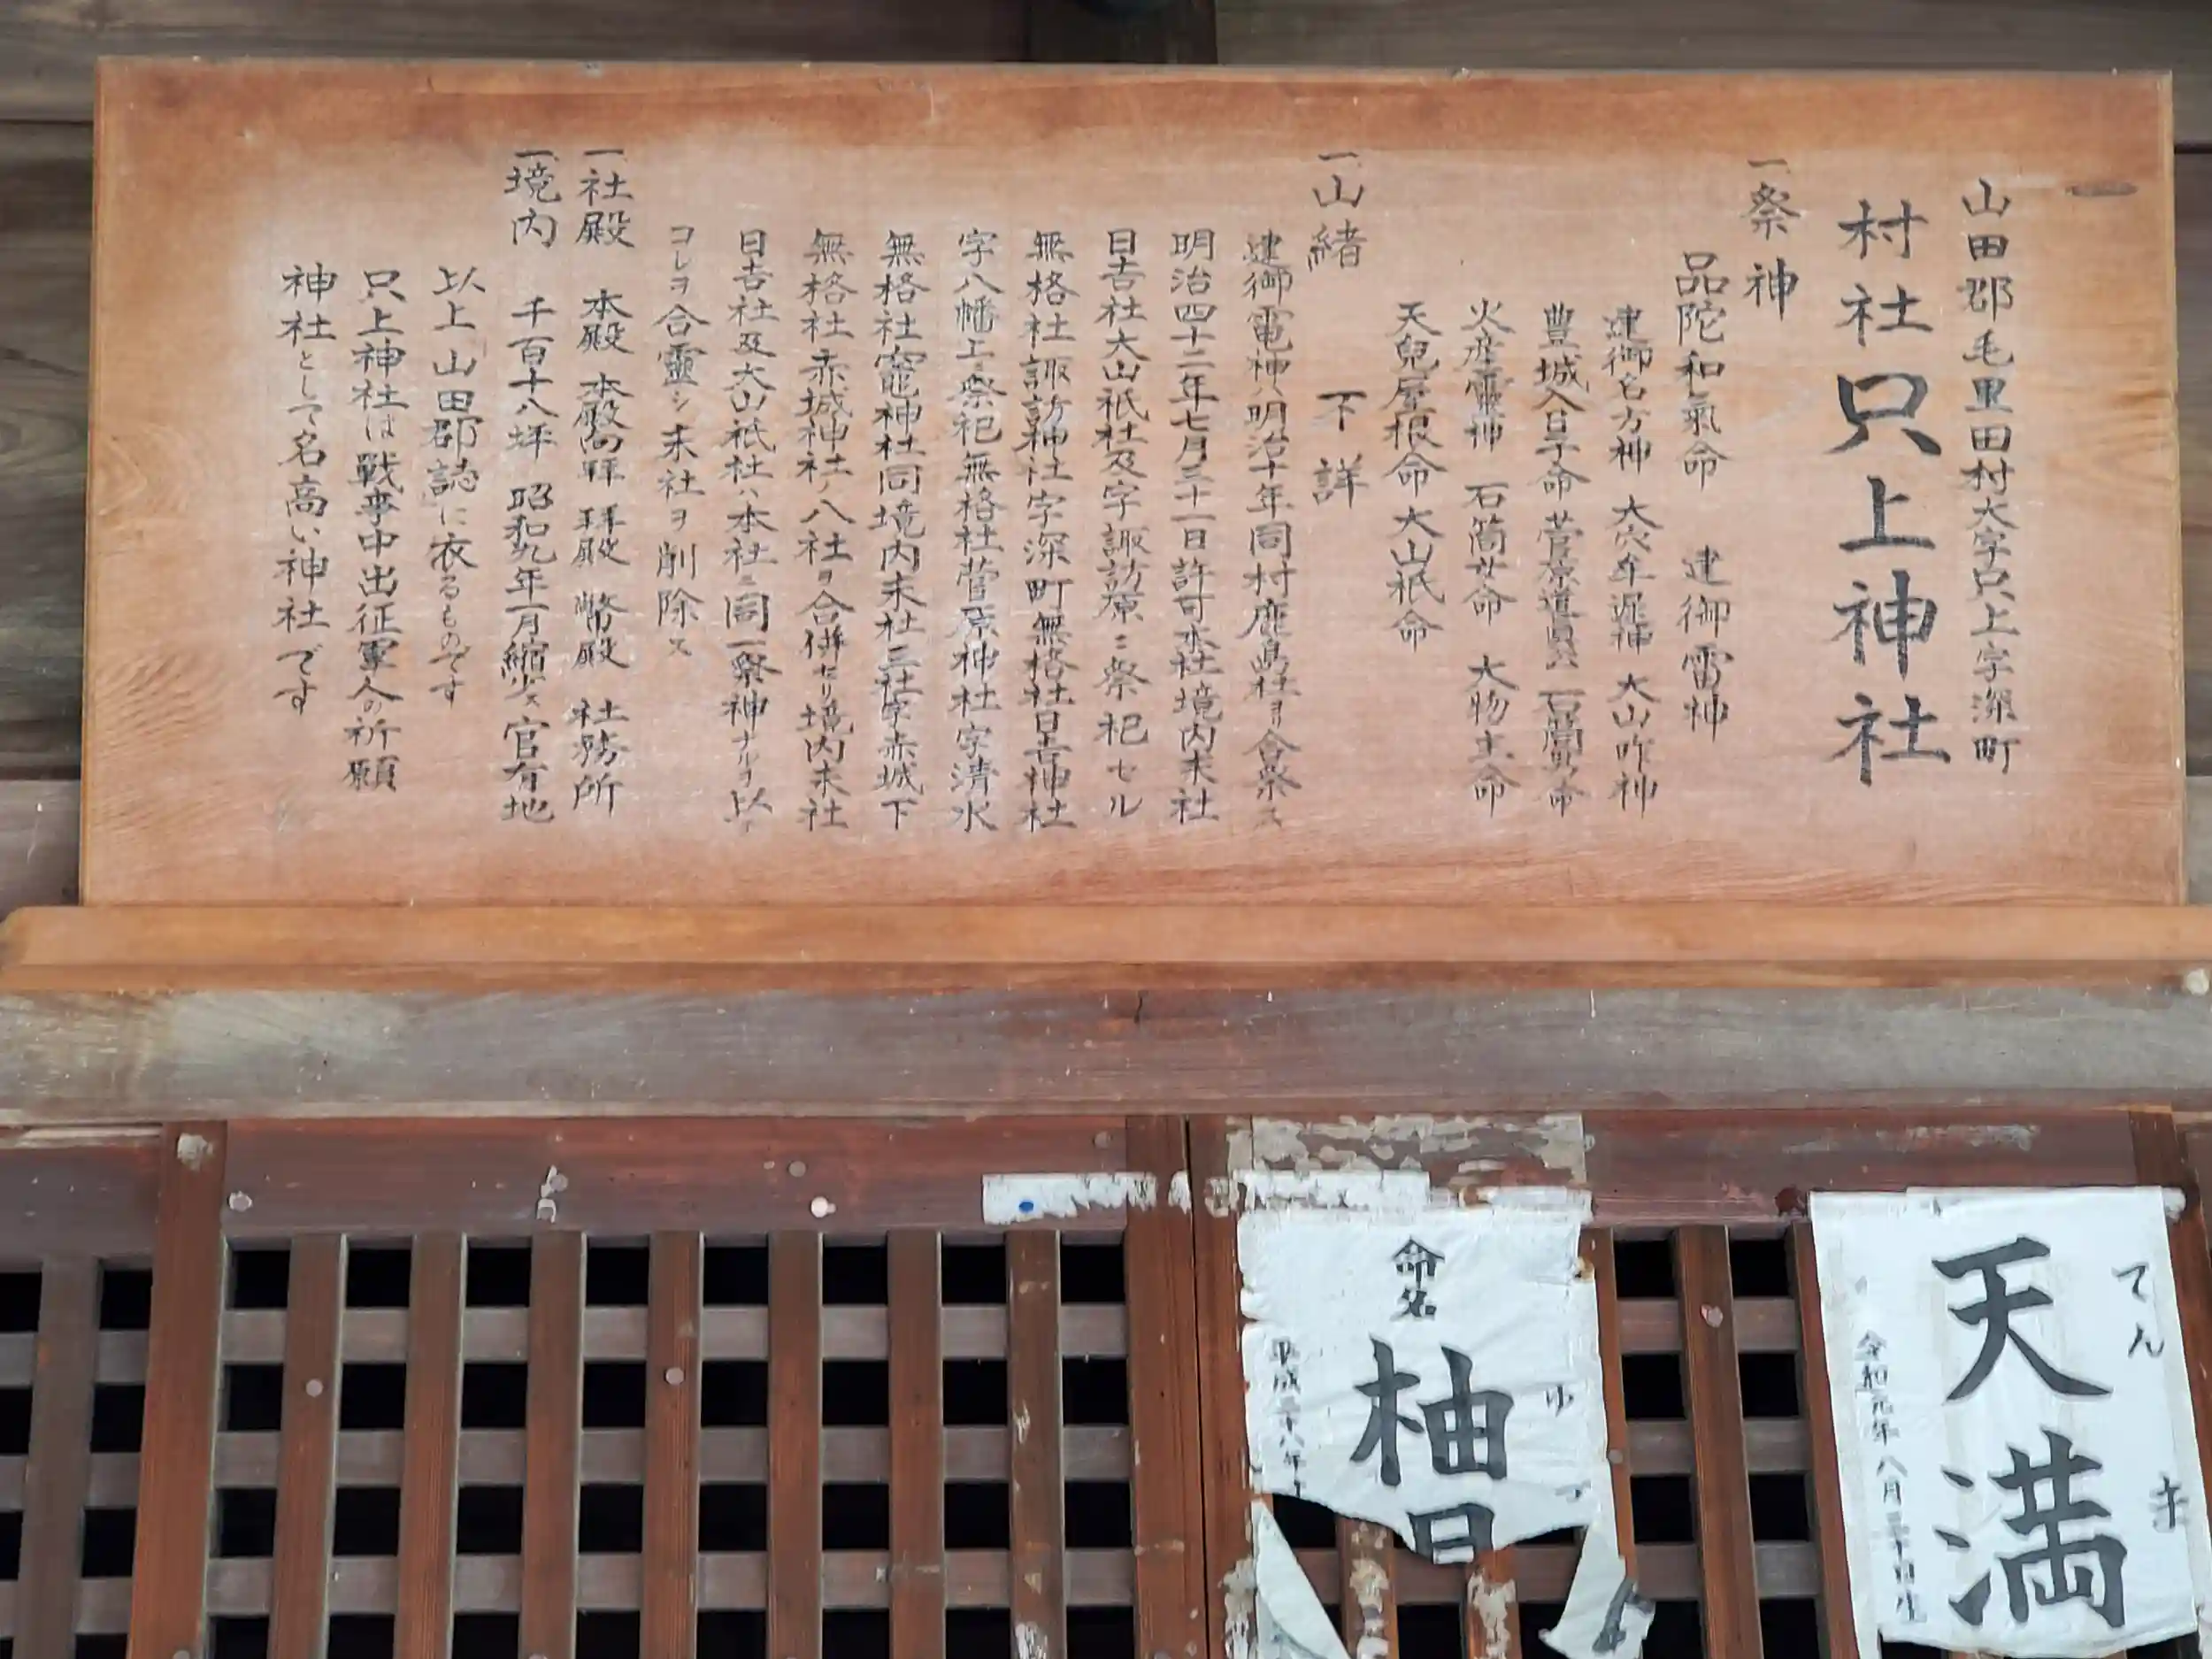 一
山田郡毛里田村大字只上字深町
村社只上神社
一祭神
品陀和氣命 建御雷神
建御名方神 大穴牟遲神 大山咋神
豊城入日子命 菅原道眞 石筒男命
火産靈神 石筒女命 大物主命
天兒屋根命 大山祇命
一山緒 下詳
建御雷神ハ明治十年同村鹿島社ヨリ合祭ス
明治四十二年七月三十一日許可本社境内末社
日吉社大山祇社及字諏訪原ニ祭祀セル
無格社諏訪神社字深町無格社日吉神社
字八幡上ニ祭祀無格社菅原神社字清水
無格社竈神社同境内末社三社字赤城下
無格社赤城神社ノ八社ヲ合併セリ境内末社
日吉社及大山祇社ハ本社ニ同一祭神ナルヲ以テ
コレヲ合靈シ末社ヲ削除ス
一社殿 本殿 本殿向拜 拜殿 幣殿 社務所
一境内 千百十八坪 昭和九年一月縮少ス 官有地
以上山田郡誌に衣るものです
只上神社は戰事中出征軍人の祈願
神社として名高い神社です
命名
柚日
ゆ
平成二十八年
てん
ま
天満
令和元年八月二十四日生